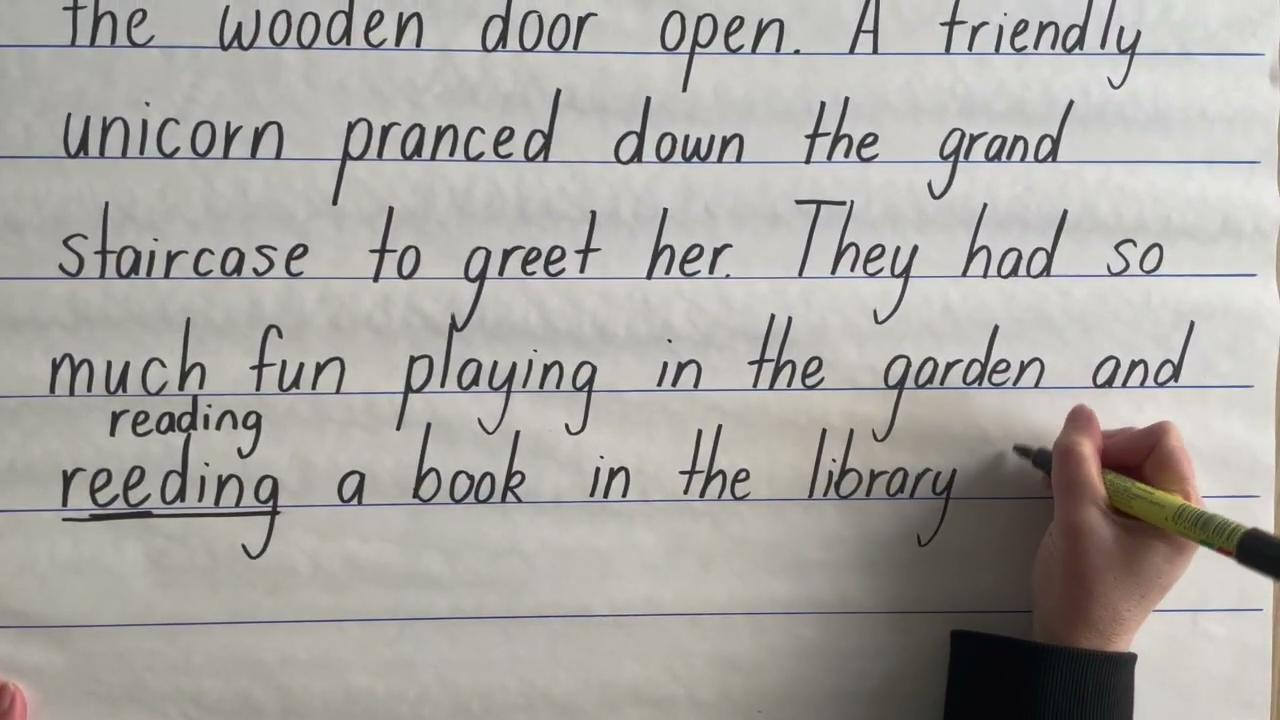 the wooden door open. A friendly
unicorn pranced down the grand
staircase to greet her. They had so
much fun playing in the garden and
reading
reeding a book in the library